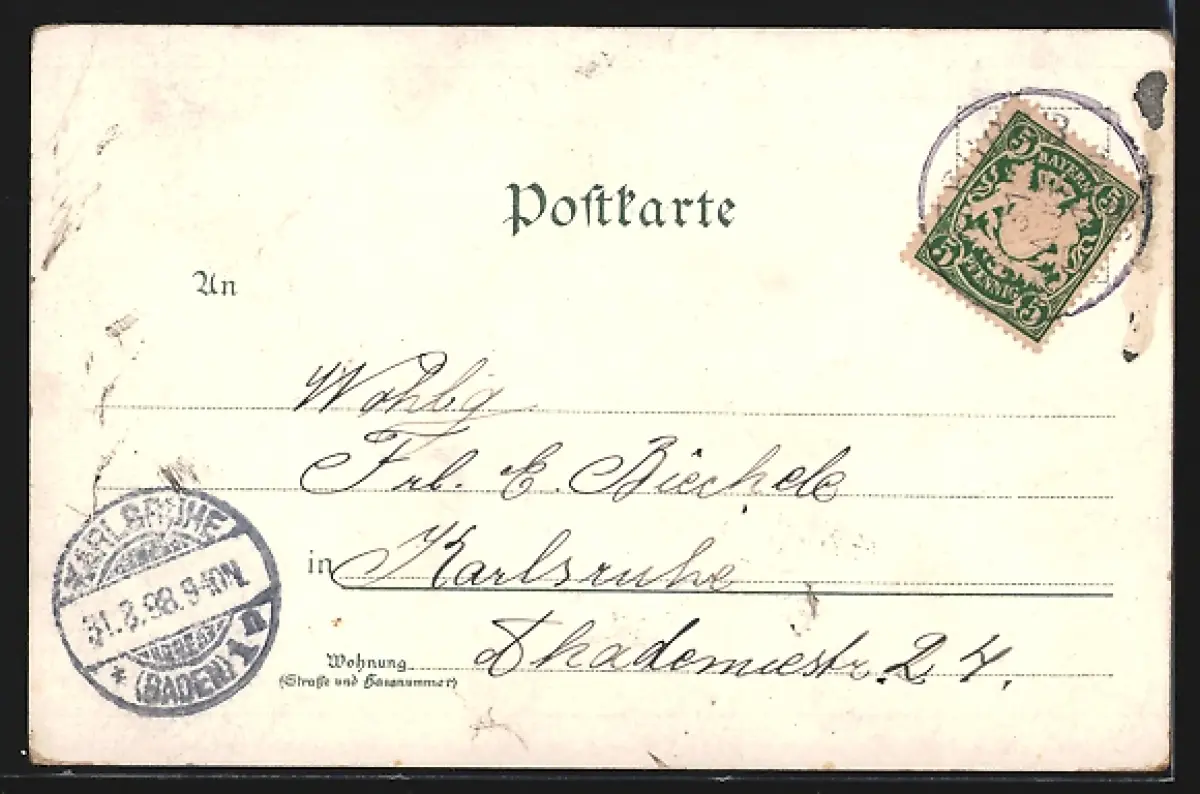 Postkarte
5 BAYERN 5
5 PFENNIG 5
An
Wohlg
Frl. E. Biechele
in Karlsruhe
Wohnung Akademiestr. 24.
(Straße und Hausnummer)
KARLSRUHE
31.8.98.9-10N.
* (BADEN) 1 n